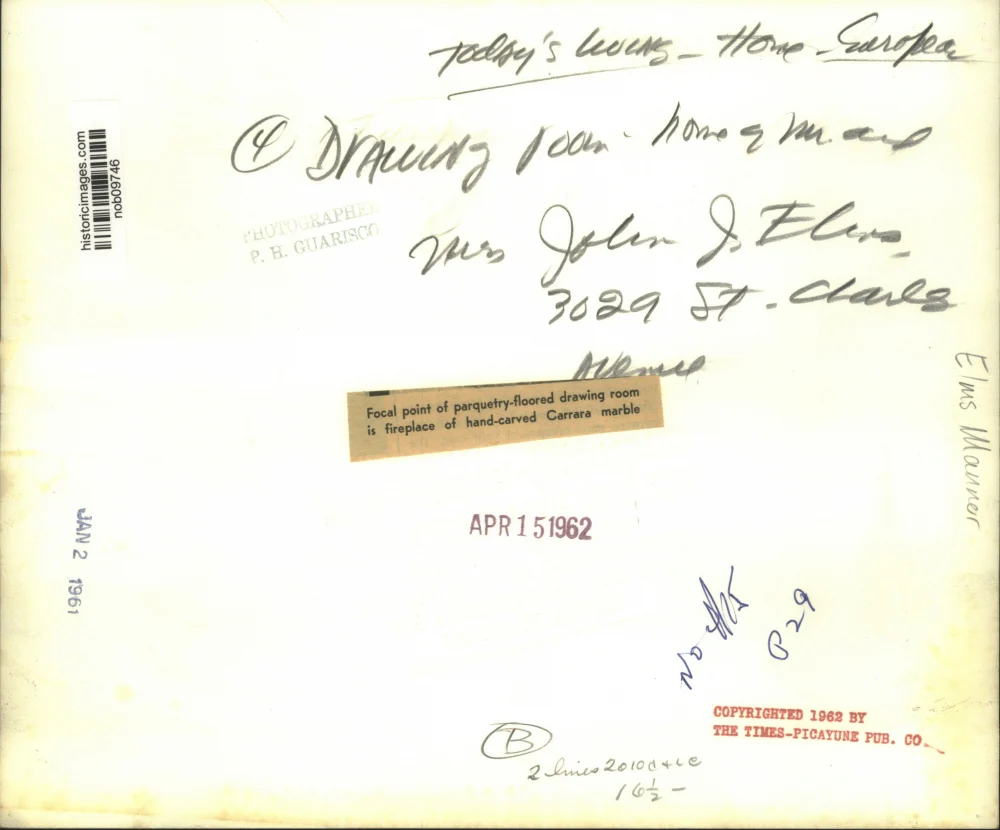 Today's living - Home - European
④ Drawing room - home of Mr. and
Mrs John J. Elms,
3029 St. Charles
Avenue
historicimages.com
nob09746
PHOTOGRAPHER
P. H. GUARISCO
Focal point of parquetry-floored drawing room
is fireplace of hand-carved Carrara marble
Elms Manner
APR 15 1962
JAN 2 1961
No
P 29
COPYRIGHTED 1962 BY
THE TIMES-PICAYUNE PUB. CO.
B
2 lines 2010
16½ -